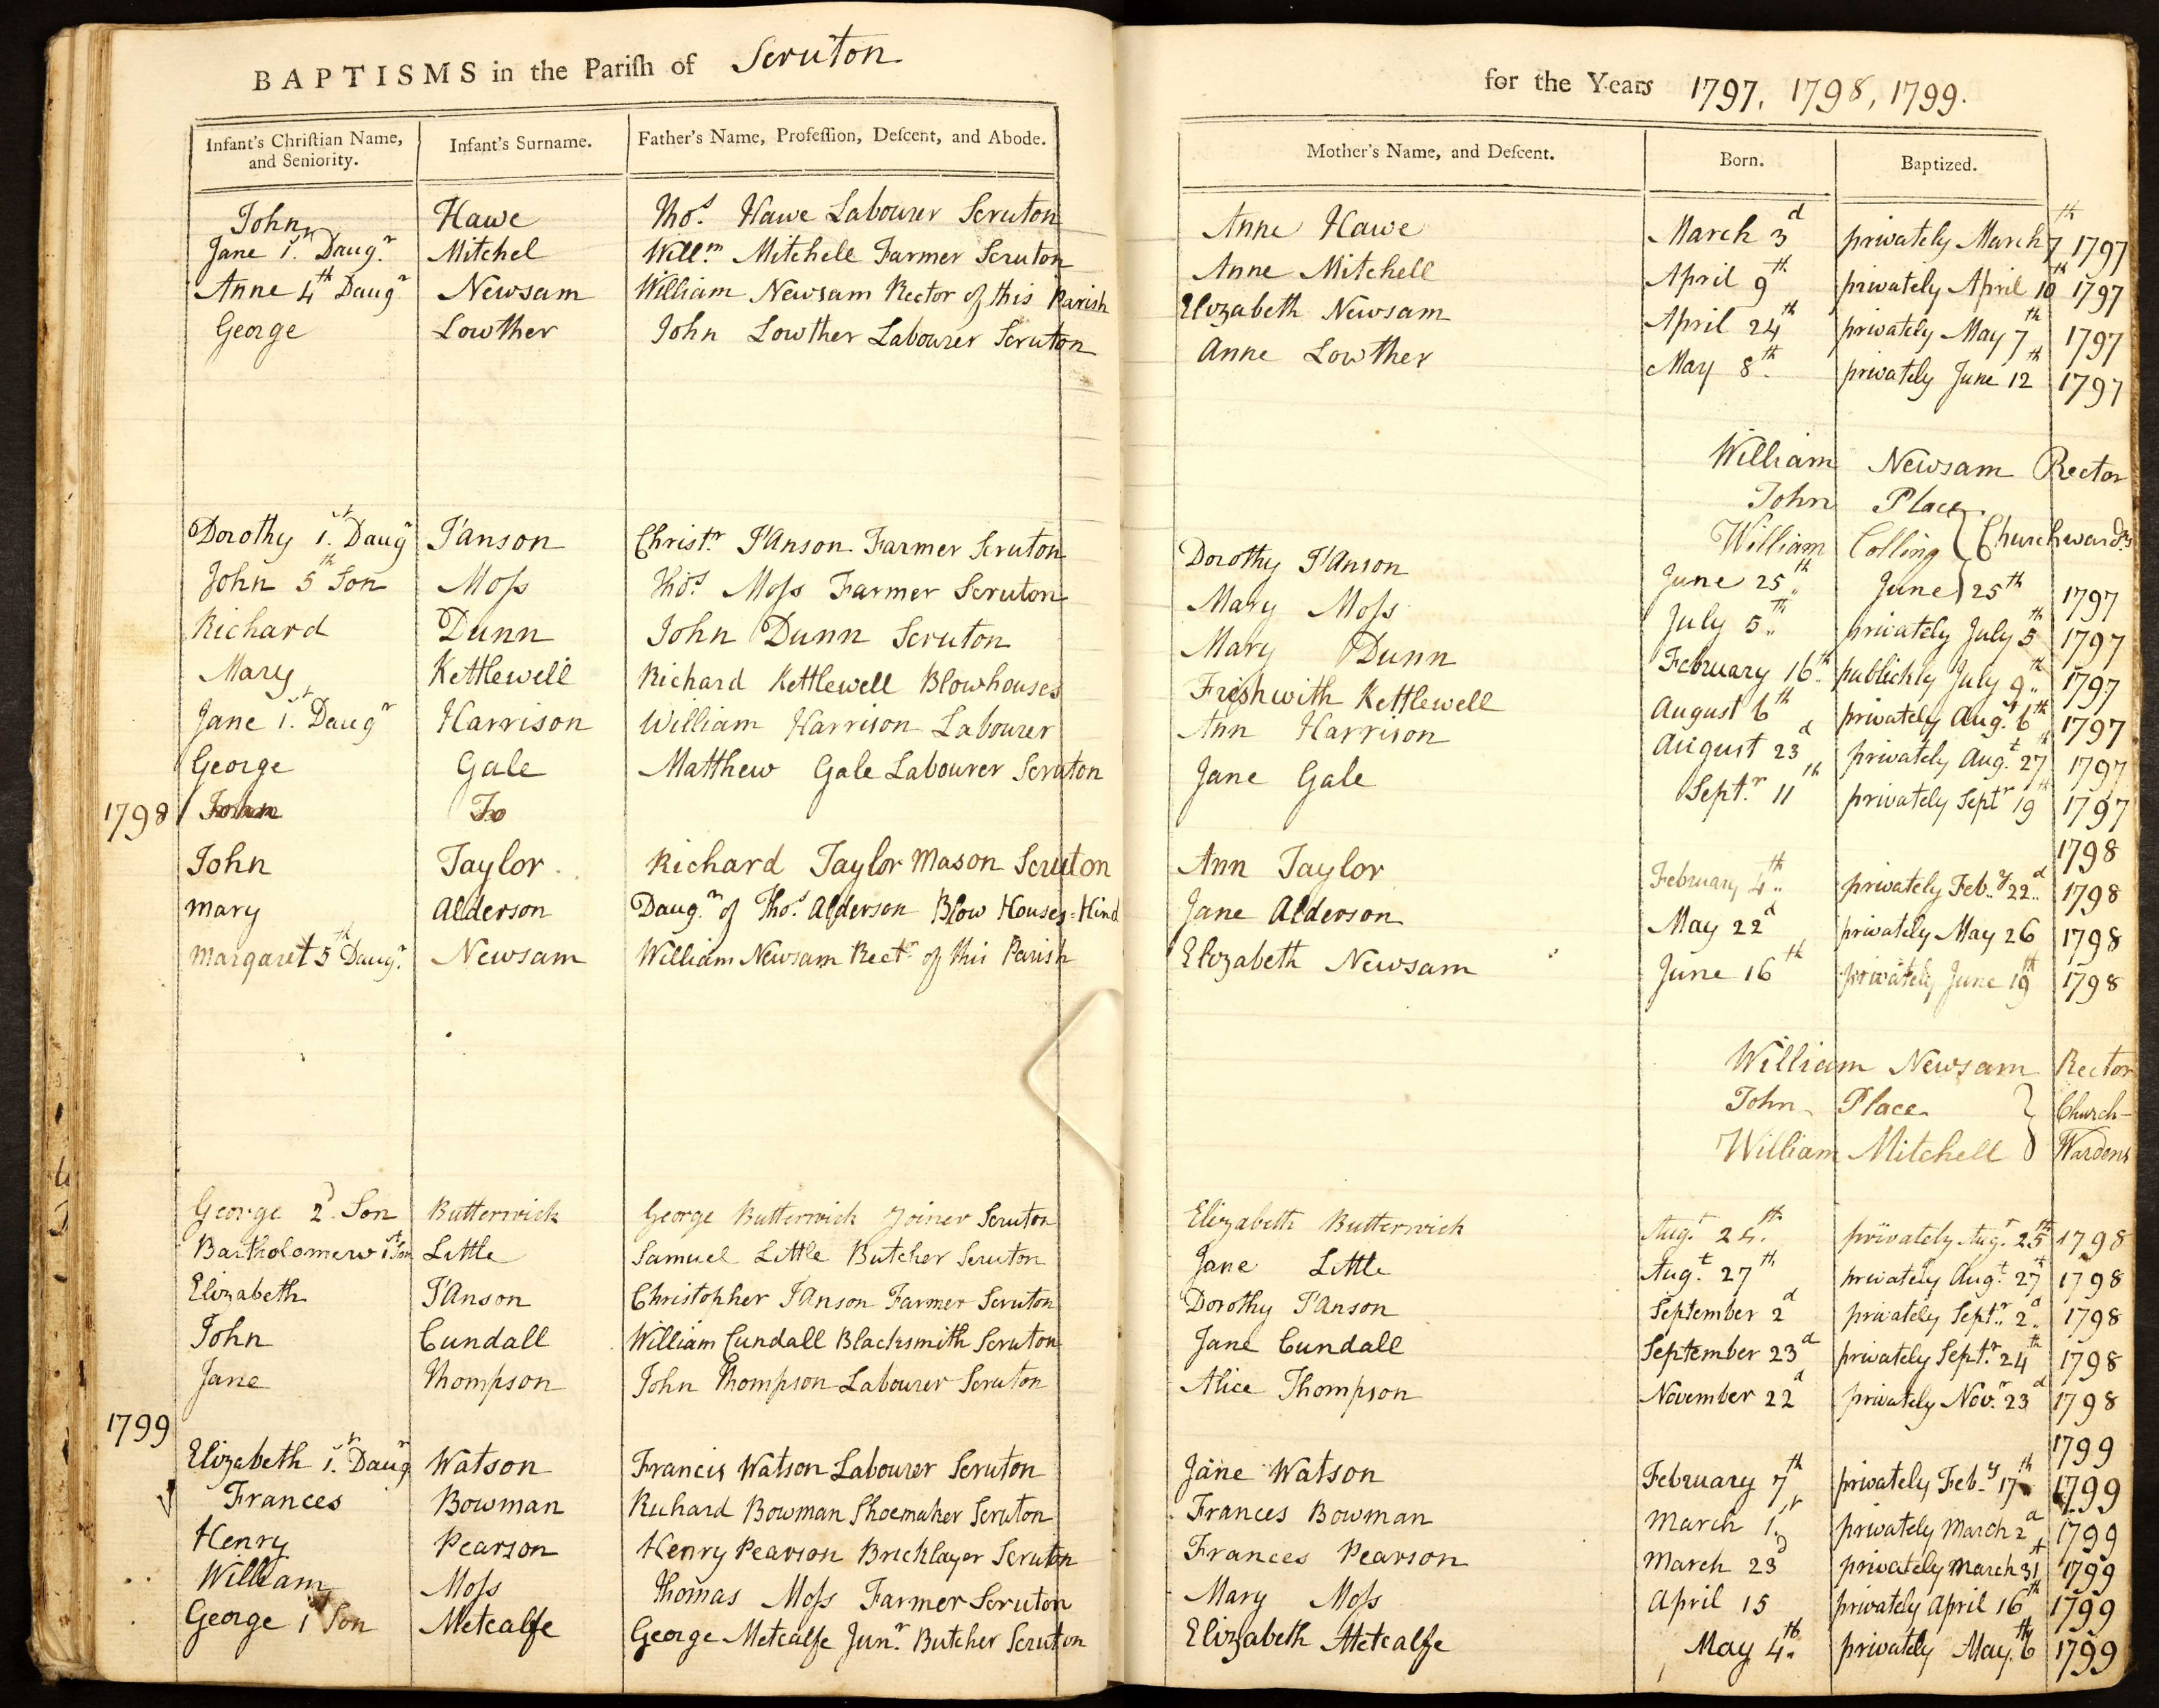 BAPTISMS in the Pariſh of Scruton
Infant's Chriſtian Name, and Seniority. Infant's Surname. Father's Name, Profeſſion, Deſcent, and Abode.
John Hawe Thos. Hawe Labourer Scruton
Jane 1st. Daugr. Mitchel Willm. Mitchell Farmer Scruton
Anne 4th Daugr Newsam William Newsam Rector of this Parish
George Lowther John Lowther Labourer Scruton
Dorothy 1st. Daugr I'anson Christr. I'Anson Farmer Scruton
John 5th Son Moſs Thos. Moſs Farmer Scruton
Richard Dunn John Dunn Scruton
Mary Kettlewell Richard Kettlewell Blowhouses
Jane 1st. Daugr Harrison William Harrison Labourer
George Gale Matthew Gale Labourer Scruton
1798
John Taylor Richard Taylor Mason Scruton
Mary Alderson Daugr. of Thos. Alderson Blow Houses-Hind
Margaret 5th Daugr. Newsam William Newsam Rectr of this Parish
George 2d Son Butterwick George Butterwick Joiner Scruton
Bartholomew 1st Son Little Samuel Little Butcher Scruton
Elizabeth I'Anson Christopher I'Anson Farmer Scruton
John Cundall William Cundall Blacksmith Scruton
Jane Thompson John Thompson Labourer Scruton
1799
Elizabeth 1st. Daugr Watson Francis Watson Labourer Scruton
Frances Bowman Richard Bowman Shoemaker Scruton
Henry Pearson Henry Pearson Bricklayer Scruton
William Moſs Thomas Moſs Farmer Scruton
George 1st Son Metcalfe George Metcalfe Junr. Butcher Scruton
for the Years 1797, 1798, 1799.
Mother's Name, and Deſcent. Born. Baptized.
Anne Hawe March 3d privately March 7th 1797
Anne Mitchell April 9th privately April 10th 1797
Elizabeth Newsam April 24th privately May 7th 1797
Anne Lowther May 8th. privately June 12th 1797
William Newsam Rector
John Place
William Colling } Churchwardns
Dorothy I'Anson June 25th June 25th 1797
Mary Moſs July 5th privately July 5th 1797
Mary Dunn February 16th publickly July 9th 1797
Frishwith Kettlewell August 6th privately Augt. 6th 1797
Ann Harrison August 23d privately Augt. 27th 1797
Jane Gale Septr. 11th privately Septr 19th 1797
1798
Ann Taylor February 4th privately Feby. 22d 1798
Jane Alderson May 22d privately May 26 1798
Elizabeth Newsam June 16th privately June 19th 1798
William Newsam Rector
John Place } Church-
William Mitchell Wardens
Elizabeth Butterwick Augt. 24th. privately Augt. 25th 1798
Jane Little Augt. 27th privately Augt. 27th 1798
Dorothy I'Anson September 2d privately Septr. 2d 1798
Jane Cundall September 23d privately Septr. 24th 1798
Alice Thompson November 22d privately Novr. 23d 1798
1799
Jane Watson February 7th privately Feby. 17th 1799
Frances Bowman March 1st. privately March 2d 1799
Frances Pearson March 23d privately March 31st 1799
Mary Moſs April 15 privately April 16th 1799
Elizabeth Metcalfe May 4th. privately May 6th 1799